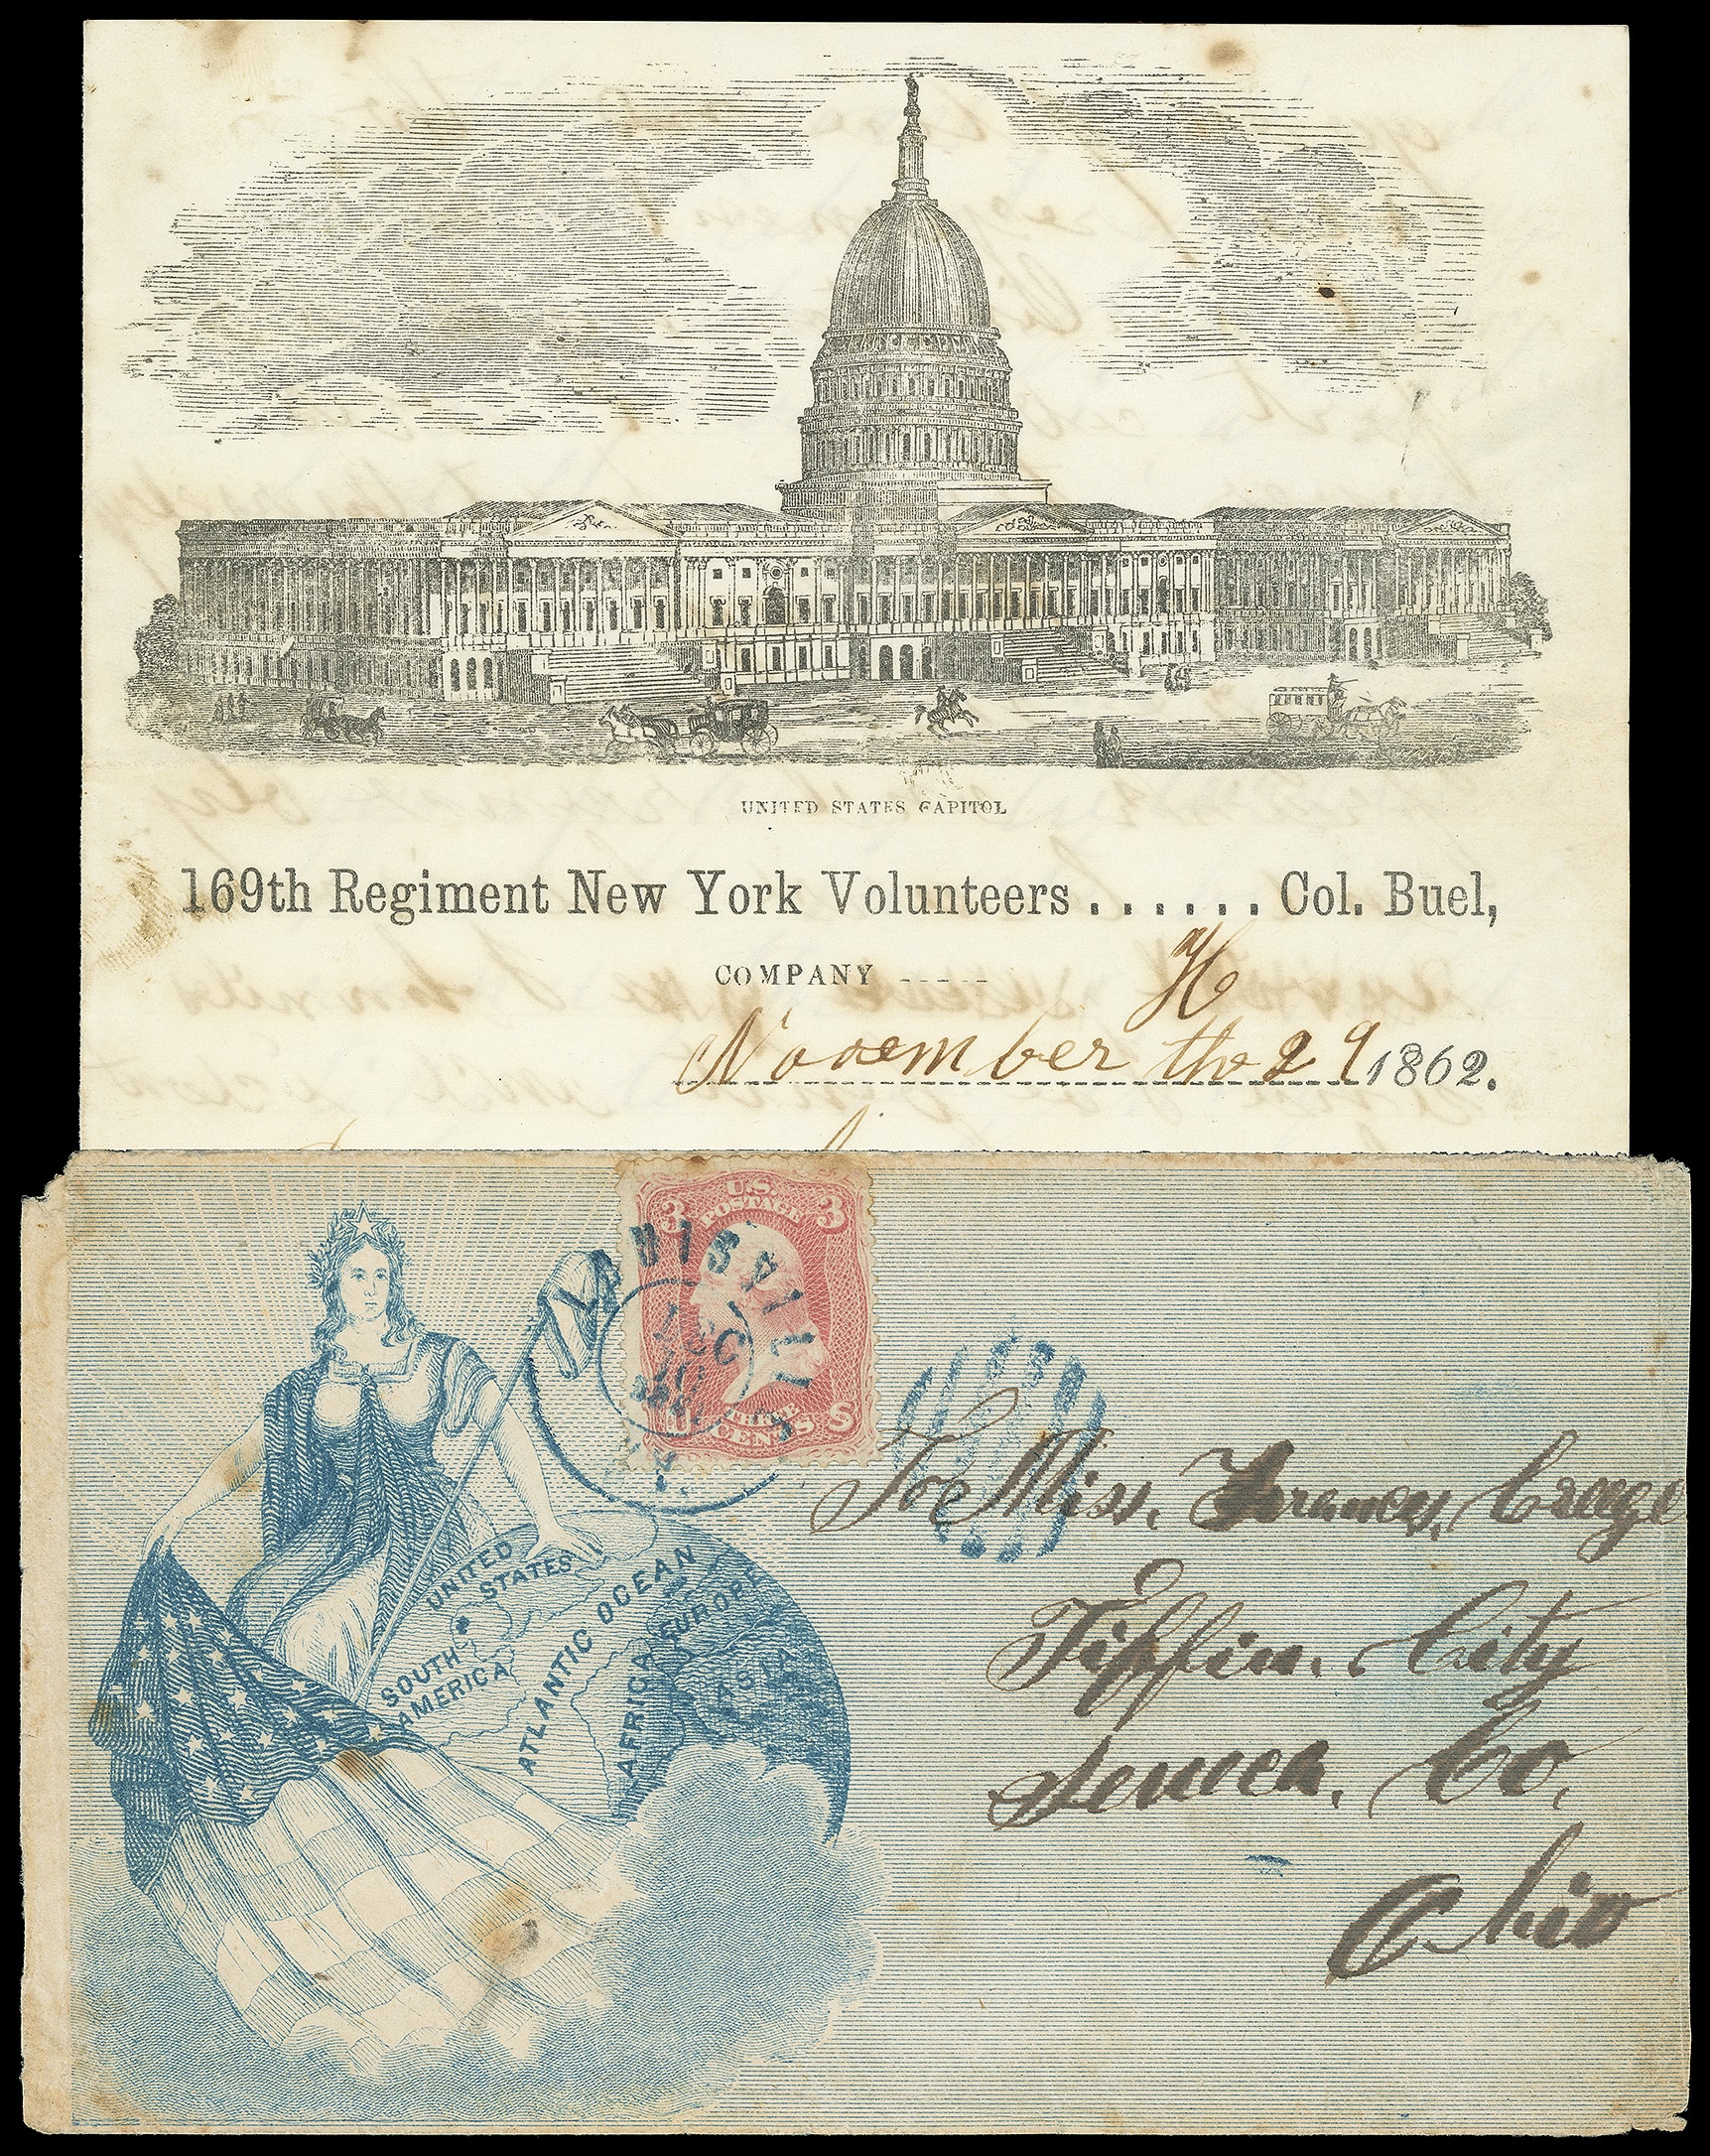 UNITED STATES CAPITOL
169th Regiment New York Volunteers . . . . . . Col. Buel,
COMPANY ----- H
November the 29 1862.
U.S.
POSTAGE
3 3
THREE
CENTS
U S
LOUISVILLE
DEC
10
KY.
UNITED
STATES
SOUTH
AMERICA
ATLANTIC OCEAN
AFRICA
EUROPE
ASIA
Toe Miss. Frances, Creege
Tiffin. City
Seneca. Co,
Ohio